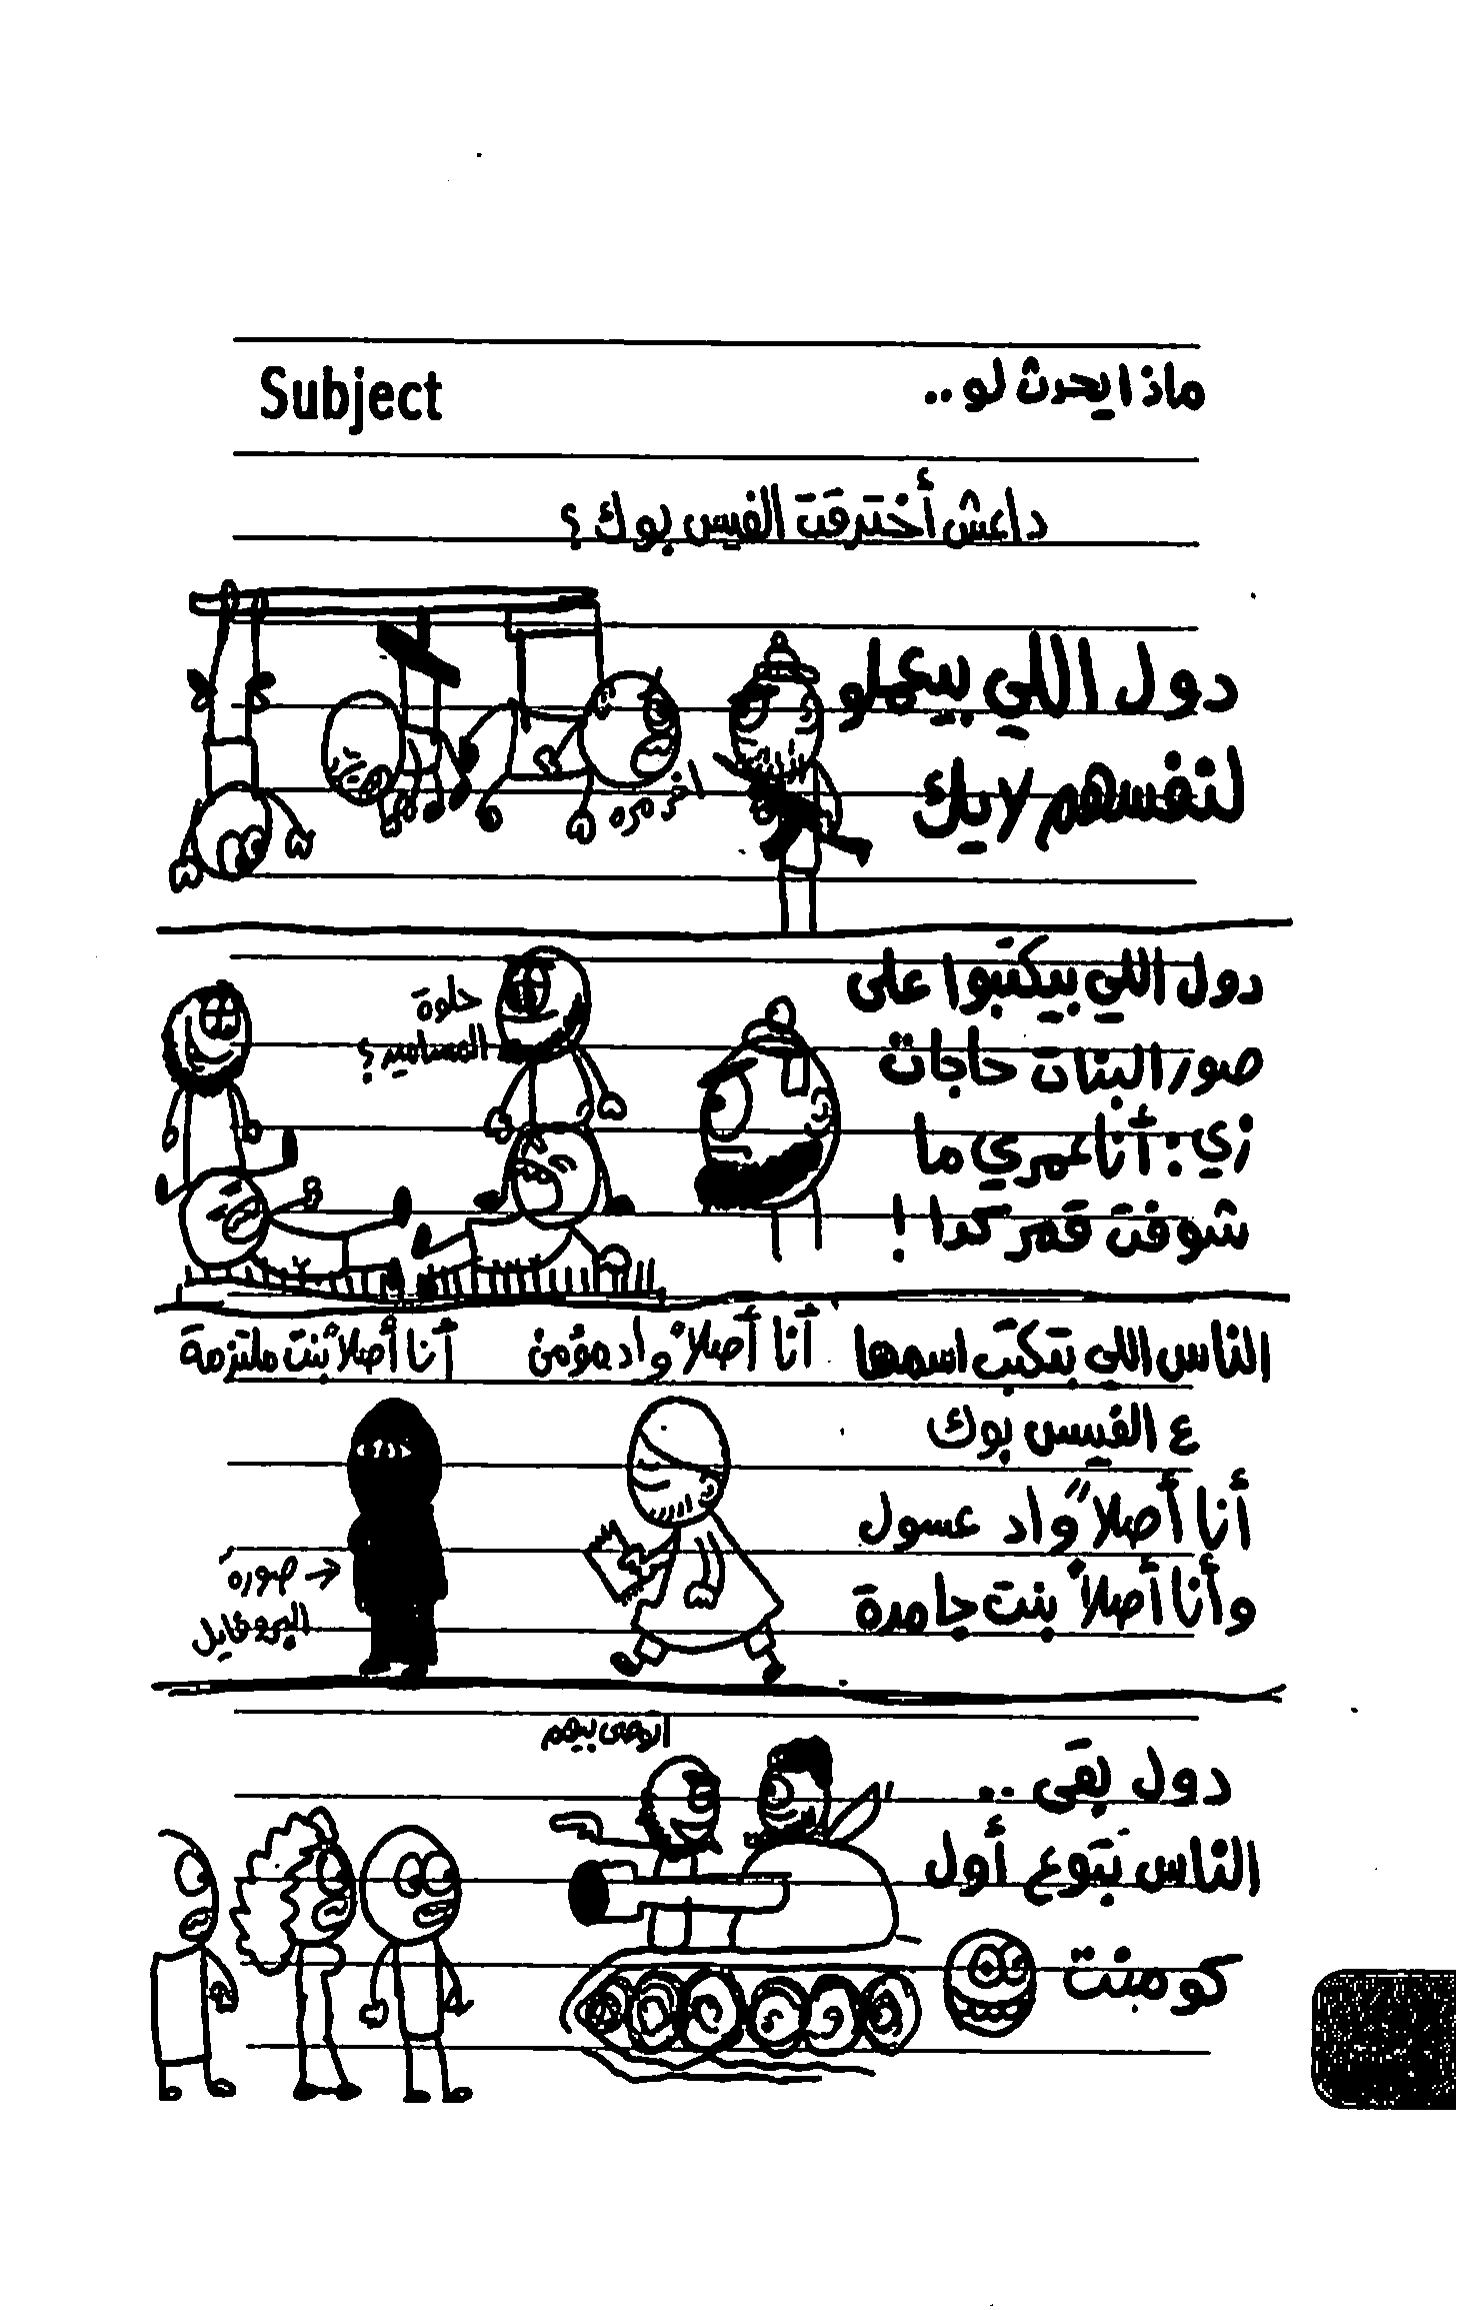 ماذا يحدث لو ..
Subject
داعش أخترقت الفيس بوك ؟
دول اللي بيعملو
لنفسهم لايك
اخر مره
دول اللي بيكتبوا على
صور البنات حاجات
زي : أنا عمري ما
شوفت قمر كدا !
حلوة
المسامير ؟
الناس اللي بتكتب اسمها
ع الفيس بوك
أنا أصلاً واد عسول
وأنا أصلاً بنت جامدة
أنا أصلاً واد مؤمن
أنا أصلاً بنت ملتزمة
صورة
البروفايل
دول بقى ..
الناس بتوع أول
كومنت
ارمي بيهم